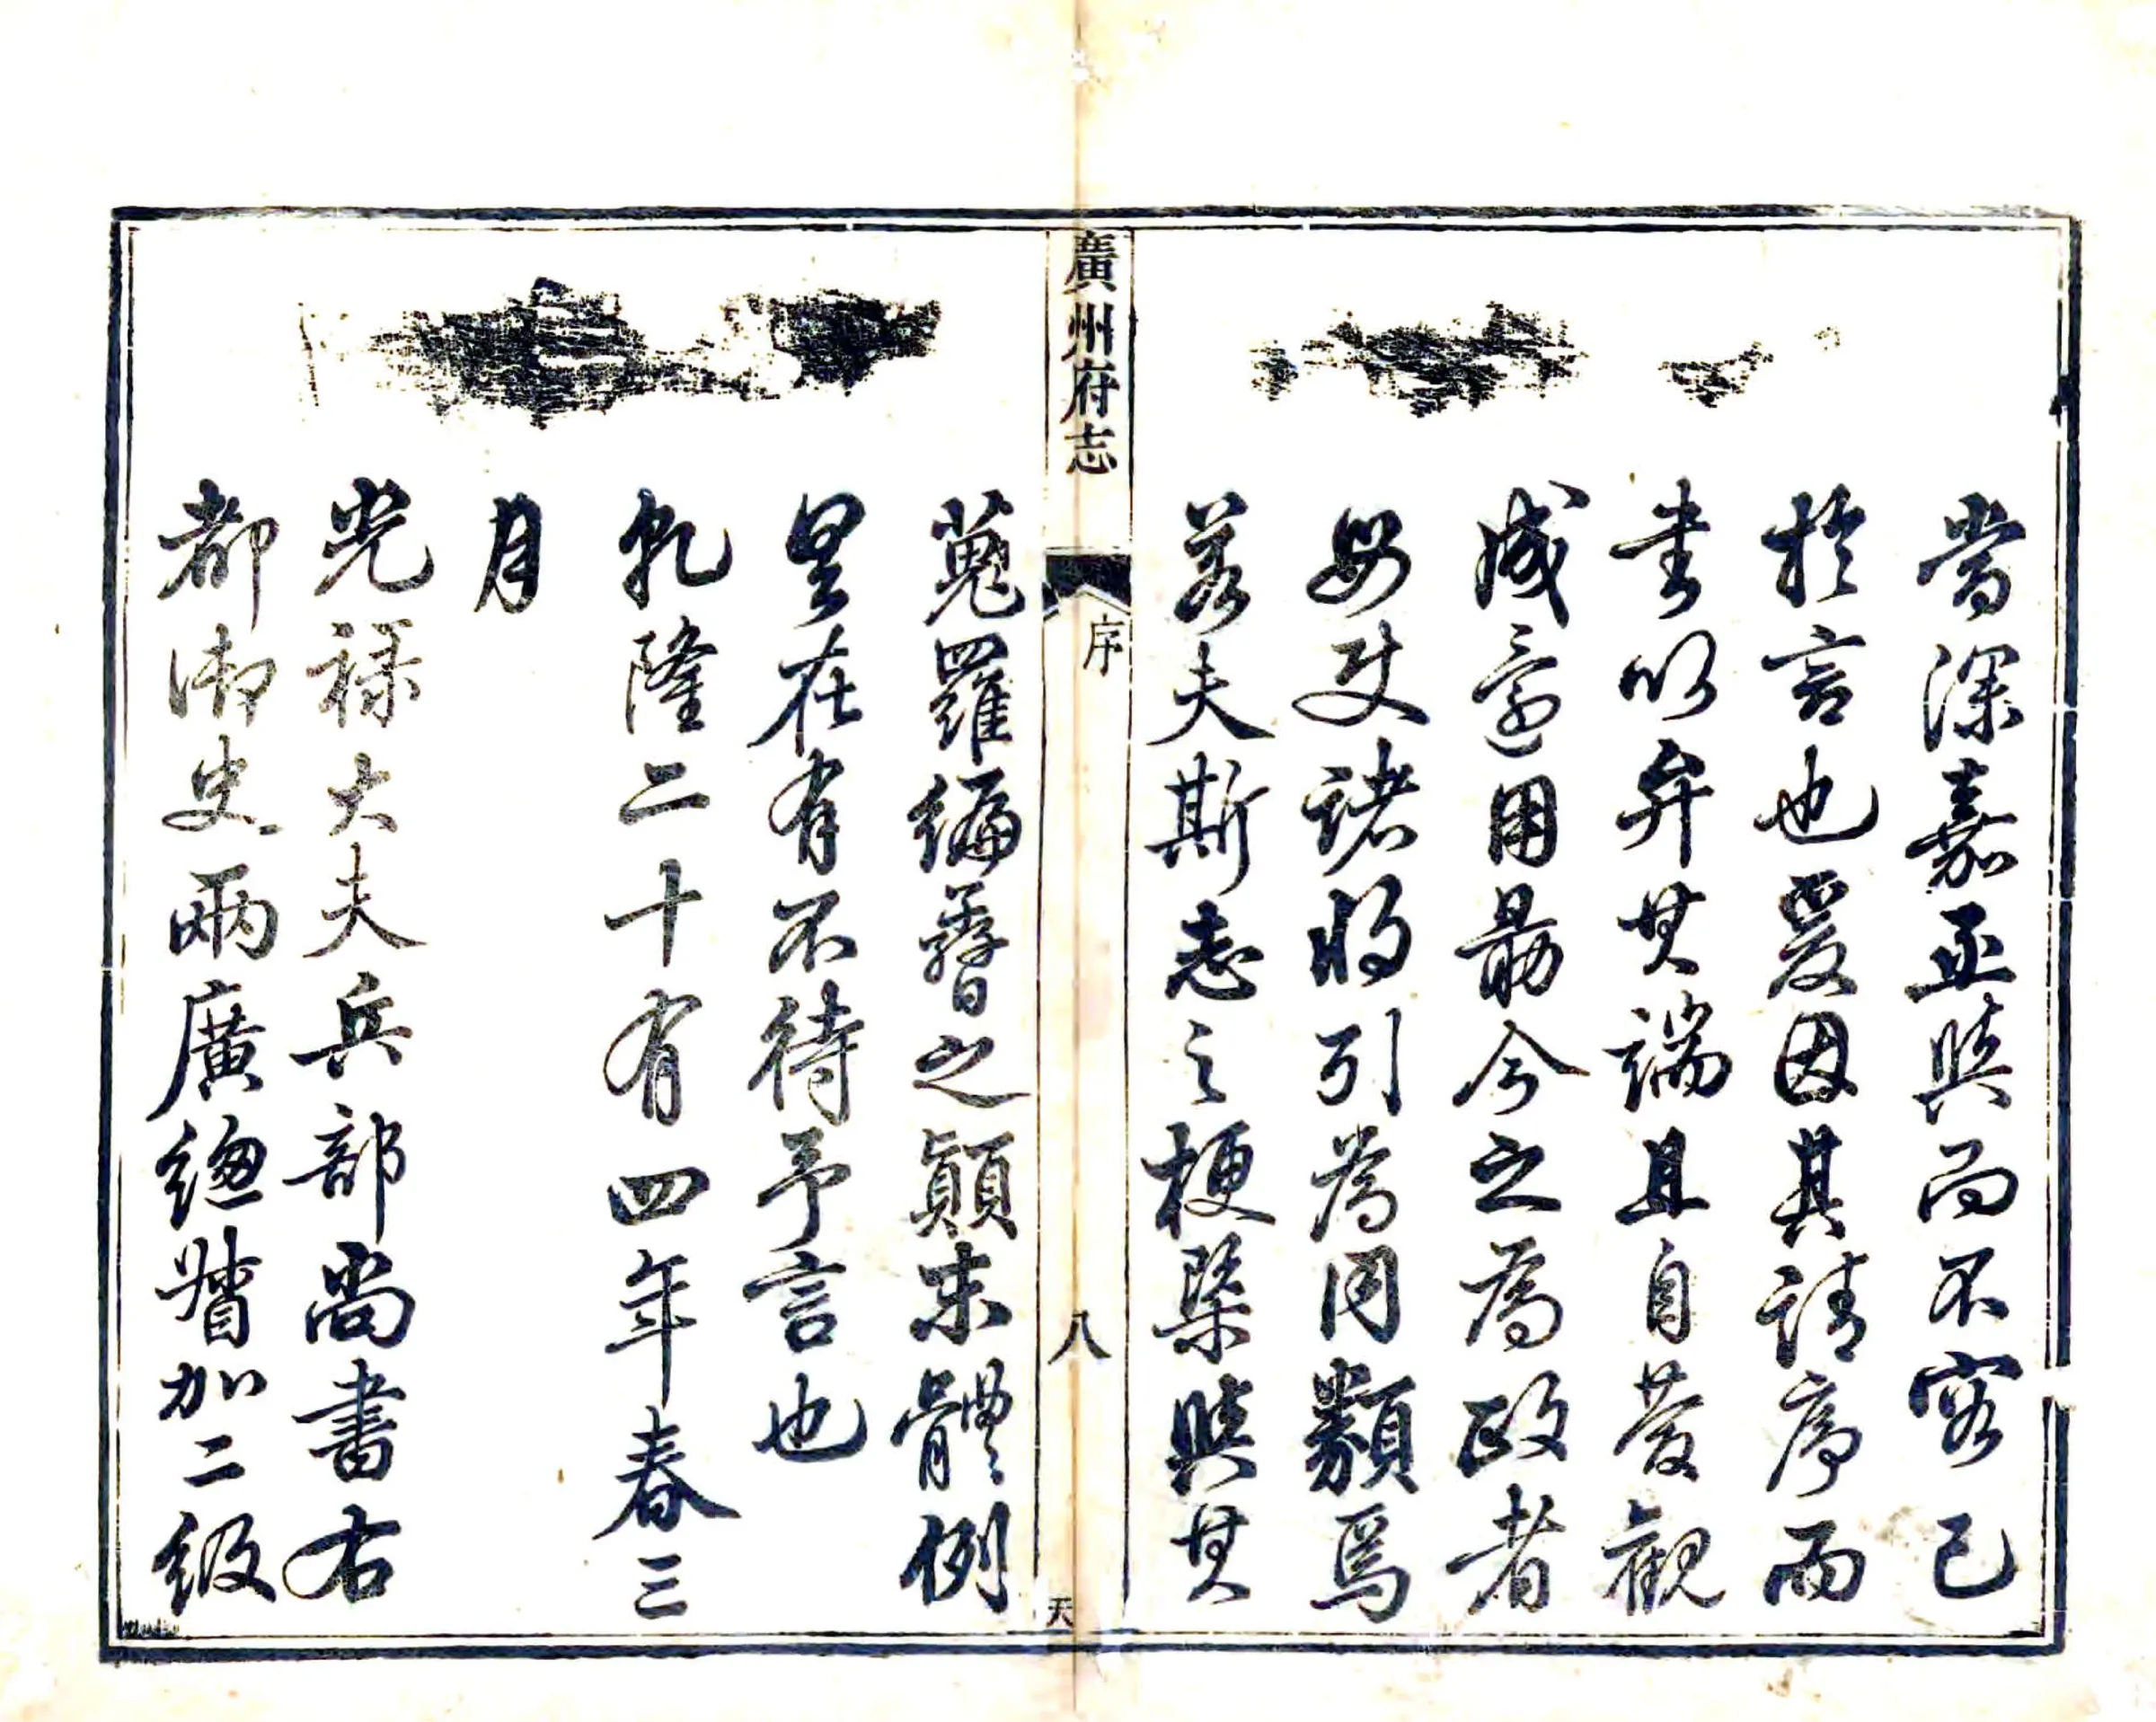 嘗深嘉亟與而不容已
於言也爰因其請序而
書以弁其端且自發觀
成意用勗今之為政者
毋使諸將引為同類焉
若夫斯志之梗槩與其
廣州府志
序
八
天
蒐羅編纂之顛末體例
具在有不待予言也
乾隆二十有四年春三
月
光祿大夫兵部尚書右
都御史兩廣總督加二級